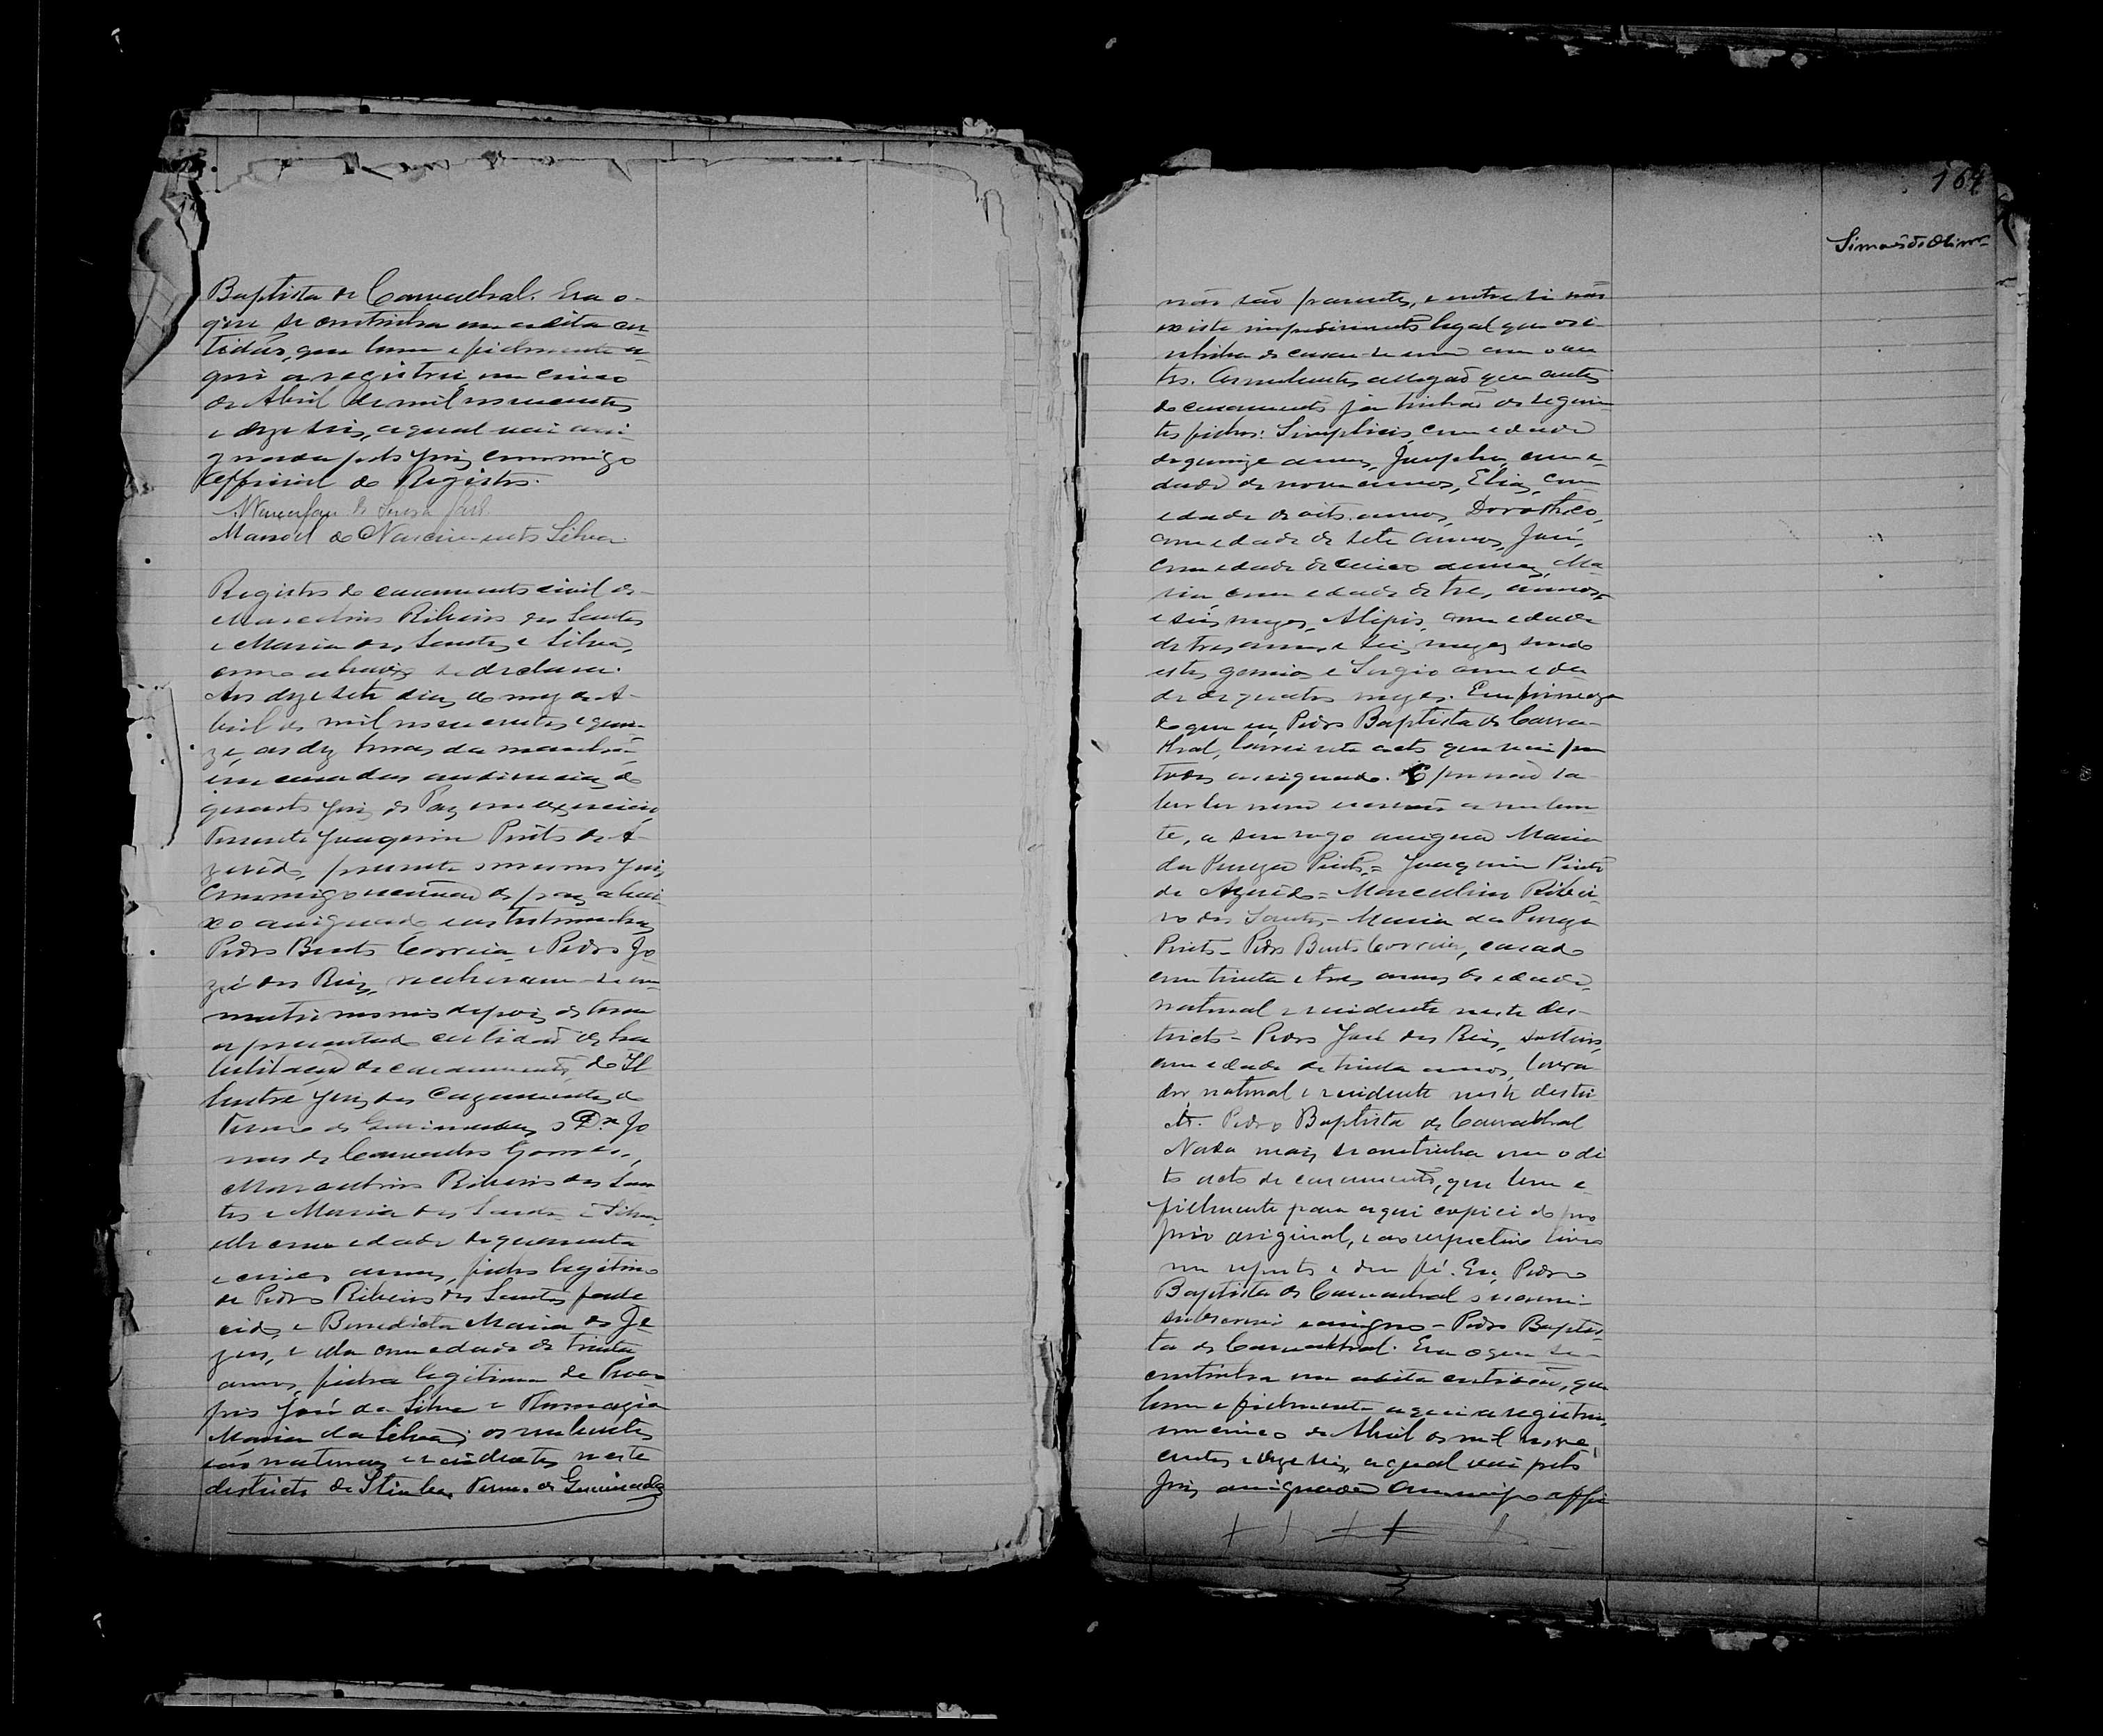 Baptista de Carvalhal. Era o
que se continha em a dita cer
tidão, que bem e fielmente a
qui a registrei, em cinco
de Abril de mil novecentos
e dezeseis, a qual vai assi
gnada pelo Juiz commigo
official do Registro.
Manoel do Nascimento Silva.
Registro do casamento civil de
Marcolino Ribeiro dos Santos
e Maria dos Santos e Silva,
como abaixo se declara.
Aos dezesete dias do mez de A-
bril de mil novecentos e quin-
ze, as dez horas da manhã,
em casa das audiencias do
quarto Juiz de Paz em exercicio,
Tenente Joaquim Pinto de A-
zevêdo, presente o mesmo Juiz,
Commigo escrivão de paz abai
xo assignado e as testemunhas
Pedro Bento Correia e Pedro Jo
zé dos Reis, receberam-se em
matrimonio depois de terem
apresentado certidão de ha
bilitação de casamento, do Il
lustre Juiz dos Cazamentos do
Termo de Guimarães, o Dr. Jo
nas de Gomes,
Marcolino Ribeiro dos San
tos e Maria dos Santos e Silva,
elle com edade de quarenta
e cinco annos, filho legitimo
de Pedro Ribeiro dos Santos, falle
cido, e Benedicta Maria de Je
zus, e ella com edade de trinta
annos, filha legitima de
José da Silva e
Maria da Silva; os nubentes
são naturaes e residentes neste
districto de Termo de Guimarães
164
não são parentes, e entre si não
existe impedimento legal que os i-
nhiba de casar-se um com o ou
tro. Os nubentes allegão que antes
do casamento já tinhão os seguin
tes filhos: Simplicio, com edade
de quinze annos, com e-
dade de nove annos, Elias, com
edade de oito annos, Dorothêo,
com edade de sete annos, José,
com edade de cinco annos, Ma
ria com edade de tres annos
e seis mezes, Alipio, com edade
de tres annos e seis mezes sendo
estes gemeos e Sergio com eda
de de quatro mezes. Em firmeza
do que eu, Pedro Baptista de Carva-
lhal, lavrei este acto que vai por
todos assignado. E por não sa-
ber ler nem escrever a nuben
te, a seu rogo assigna Maria
da Pureza Pinto = Joaquim Pinto
de Azevêdo = Marcolino Ribei
ro dos Santos - Maria da Pureza
Pinto - Pedro Bento Correia, casado
com trinta e tres annos de edade,
natural e residente neste dis-
tricto - Pedro José dos Reis, solteiro,
com edade de trinta annos, lavra
dor natural e residente neste distri
cto. Pedro Baptista de Carvalhal
Nada mais se continha em o di
to acto de casamento, que bem e
fielmente para aqui copiei do pro
prio original, e ao respectivo livro
me reporto e dou fé. Eu, Pedro
Baptista de Carvalhal escrevi-
subscrevi e assigno - Pedro Baptis
ta de Carvalhal. Era o que se
continha em a dita certidão, que
bem e fielmente aqui a registrei,
em cinco de Abril de mil nove
centos e dezeseis, a qual vai pelo
Juiz assignada commigo offi